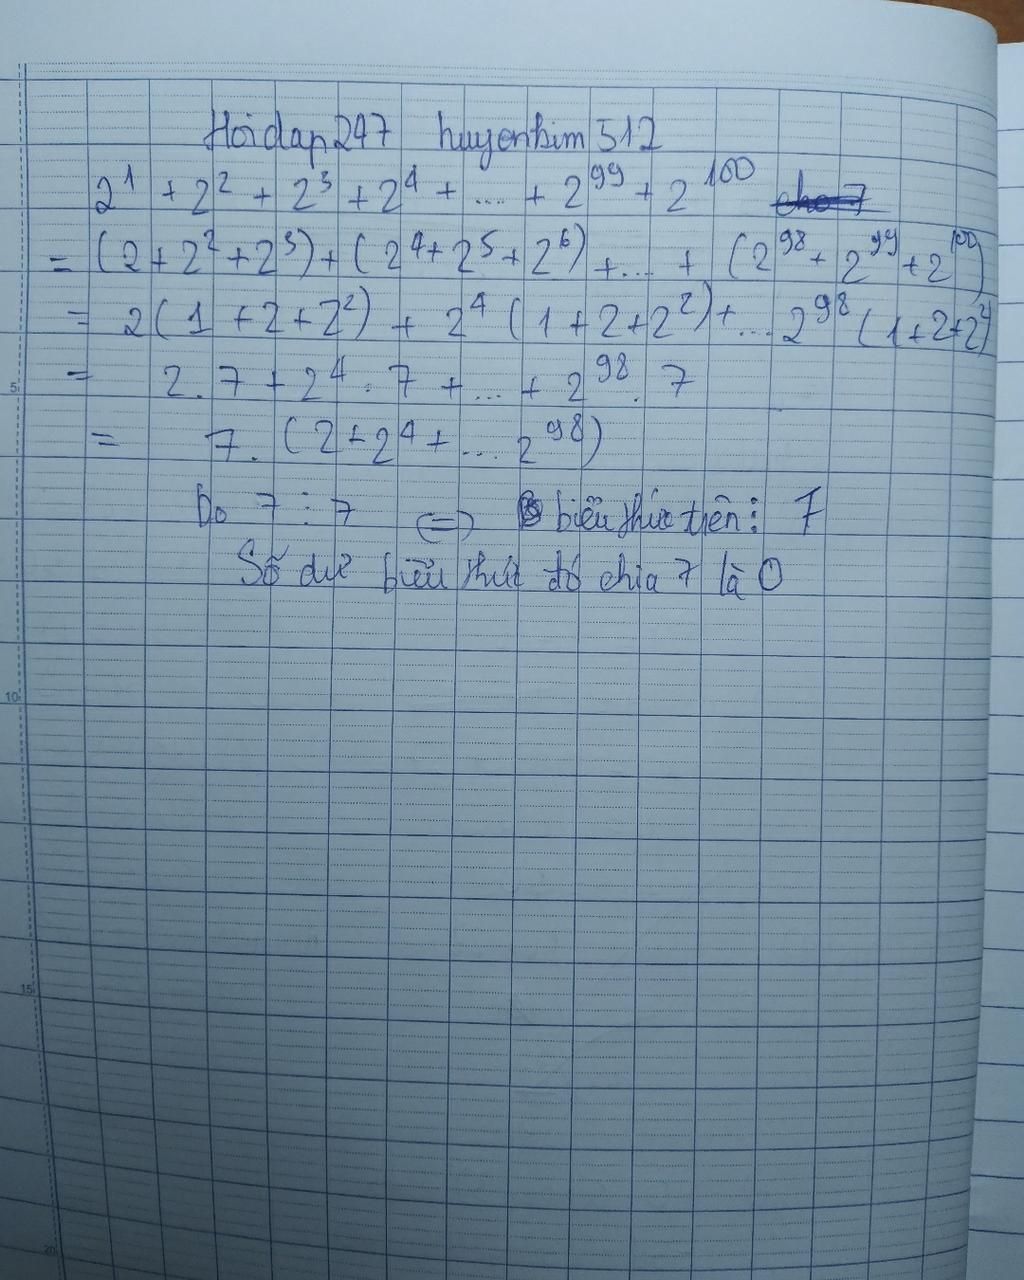 Hoidap247 huyenkim512
2¹ + 2² + 2³ + 2⁴ + .... + 2⁹⁹ + 2¹⁰⁰
= (2 + 2² + 2³) + (2⁴ + 2⁵ + 2⁶) + .... + (2⁹⁸ + 2⁹⁹ + 2¹⁰⁰)
= 2(1 + 2 + 2²) + 2⁴(1 + 2 + 2²) + .... 2⁹⁸(1 + 2 + 2²)
= 2.7 + 2⁴.7 + ... + 2⁹⁸.7
= 7.(2 + 2⁴ + .... 2⁹⁸)
5
Do 7 ⋮ 7 <=> biểu thức trên ⋮ 7
Số dư biểu thức đó chia 7 là 0
10
15
20